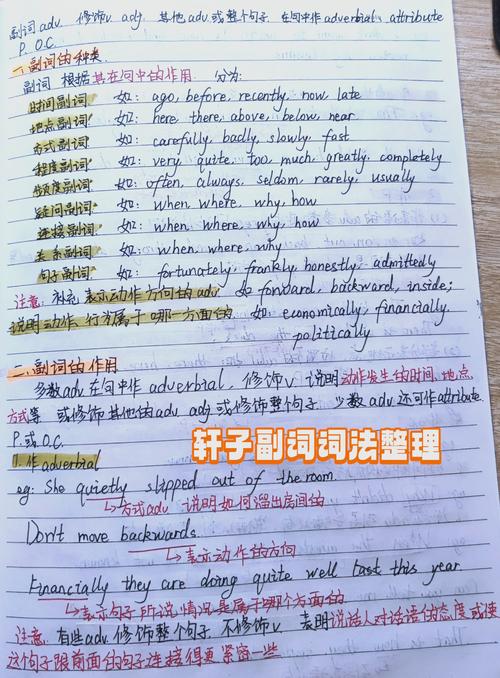 副词 adv. 修饰v. adj. 其他adv.或整个句子. 在句中作adverbial, attribute
P. O.C.
一.副词的种类.
副词 根据其在句中的作用. 分为:
时间副词 如: ago, before, recently, now, late
地点副词 如: here, there, above, below, near
方式副词 如: carefully, badly, slowly, fast
程度副词 如: very, quite, too, much, greatly, completely
频度副词 如: often, always, seldom, rarely, usually
疑问副词 如: when, where, why, how
连接副词 如: when, where, why, how
关系副词 如: when, where, why
句子副词 如: fortunately, frankly, honestly, admittedly
注意: 补充 表示动作方向的adv 如 forward, backward, inside;
说明动作、行为属于哪一方面的. 如: economically, financially.
politically
二.副词的作用
多数adv在句中作adverbial, 修饰v. 说明动作发生的时间、地点、
方式等. 或修饰其他的adv. adj或修饰整个句子. 少数adv还可作attribute.
P.或O.C.
轩子副词词法整理
1.作adverbial
eg: She quietly slipped out of the room.
→方式adv. 说明如何溜出房间的
Don't move backwards.
→表示动作的方向
Financially they are doing quite well last this year.
→表示句子所说情况是属于哪个方面的
注意: 有些adv.修饰整个句子. 不修饰v. 表明说话人对话语的态度或使
这个句子跟前面的句子连接得更紧密一些